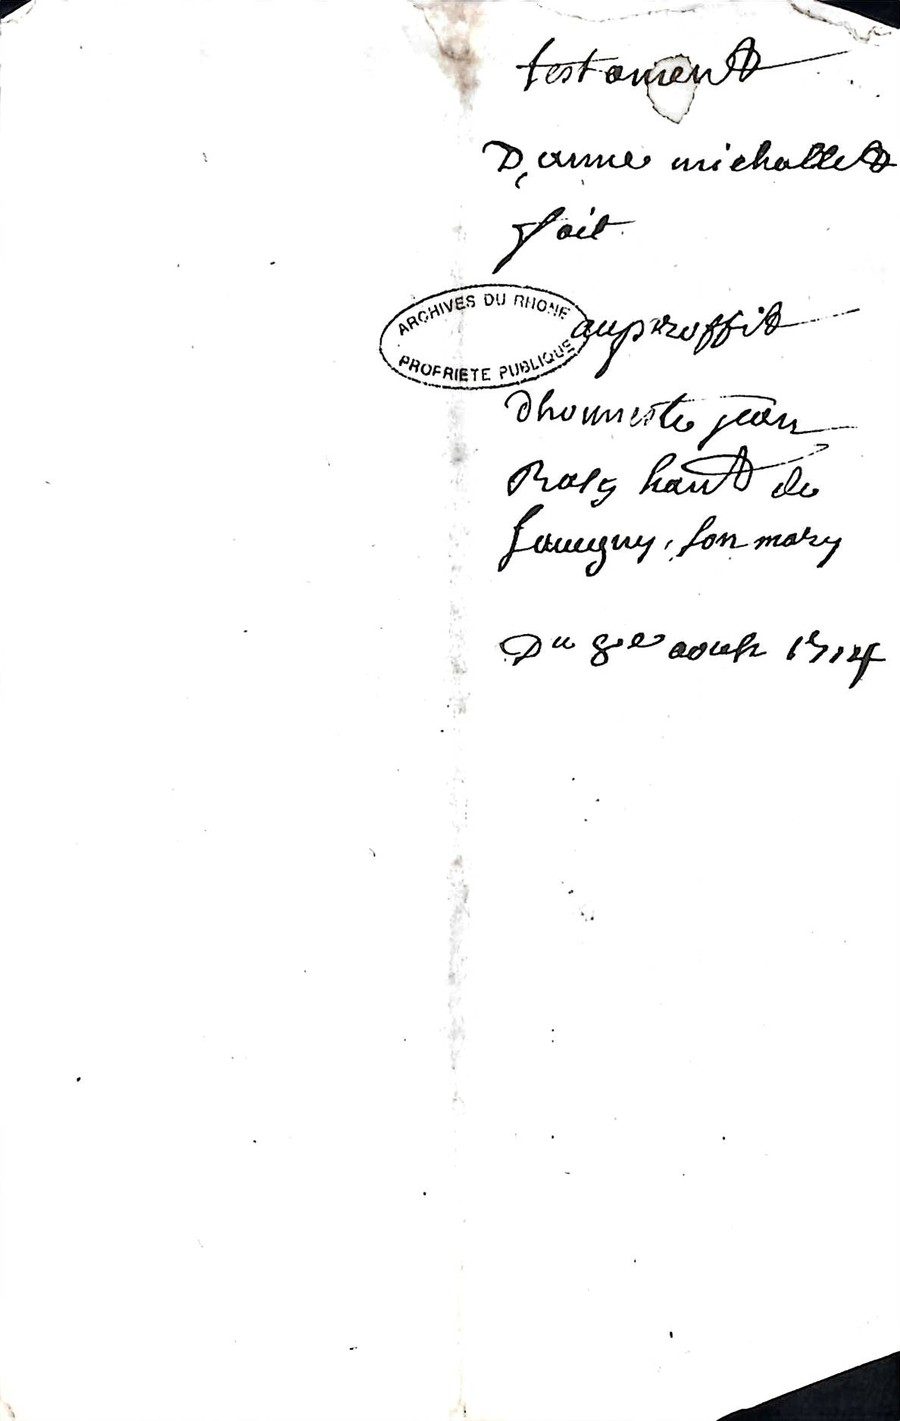 testament
D'anne michallet
fait
ARCHIVES DU RHONE
PROPRIETE PUBLIQUE
au proffit
d'honneste jean
hant de
Savigny, son mary
Du 8e aoust 1714